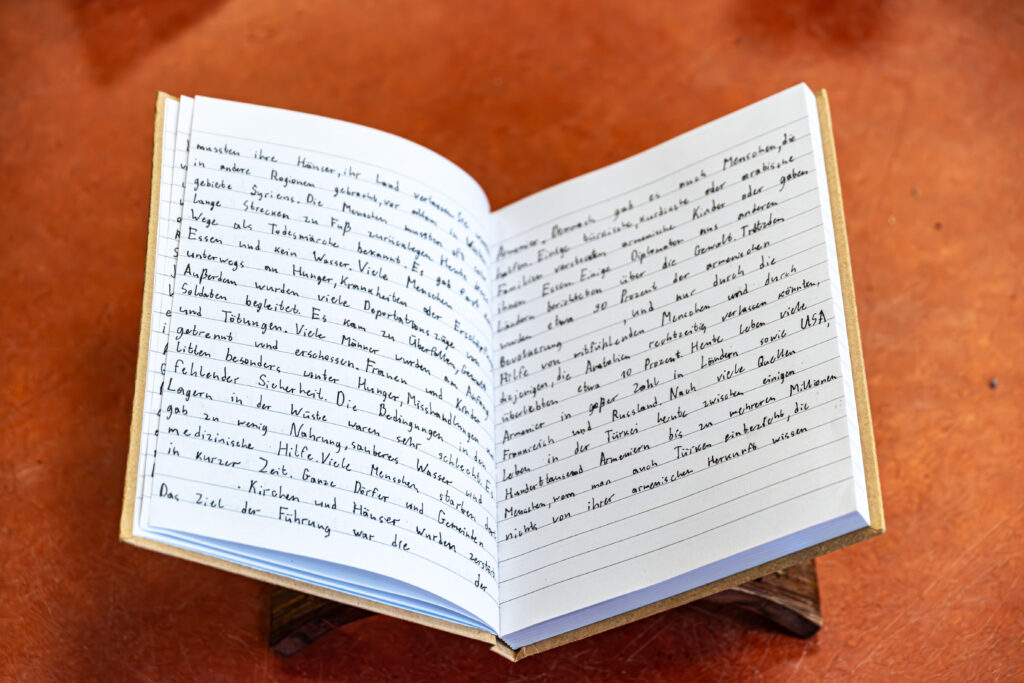 mussten ihre Häuser, ihr Land verlassen. Sie
in andere Regionen gebracht, vor allem in
gebiete Syriens. Die Menschen mussten oft
lange Strecken zu Fuß zurücklegen. Heute sind
Wege als Todesmärsche bekannt. Es gab kaum
Essen und kein Wasser. Viele Menschen
unterwegs an Hunger, Krankheiten oder
Außerdem wurden viele Deportationszüge von
Soldaten begleitet. Es kam zu Überfällen, Gewalt
und Tötungen. Viele Männer wurden am Anfang
getrennt und erschossen. Frauen und Kinder
litten besonders unter Hunger, Misshandlungen
fehlender Sicherheit. Die Bedingungen in den
Lagern in der Wüste waren sehr schlecht. Es
gab zu wenig Nahrung, sauberes Wasser und
medizinische Hilfe. Viele Menschen starben dort
in kurzer Zeit. Ganze Dörfer und Gemeinden
. Kirchen und Häuser wurden zerstört
Das Ziel der Führung war die
der
Armenier. Dennoch gab es auch Menschen, die
halfen. Einige türkische, kurdische oder arabische
Familien versteckten armenische Kinder oder gaben
ihnen Essen. Einige Diplomaten aus anderen
Ländern berichteten über die Gewalt. Trotzdem
wurden etwa 90 Prozent der armenischen
Bevölkerung , und nur durch die
Hilfe von mitfühlenden Menschen und durch
diejenigen, die Anatolien rechtzeitig verlassen könnten,
überlebten etwa 10 Prozent. Heute leben viele
Armenier in großer Zahl in Ländern sowie USA,
Frankreich und Russland. Nach viele Quellen
leben in der Türkei heute zwischen einigen
Hunderttausend Armeniern bis zu mehreren Millionen
Menschen, wenn man auch Türken einbezieht, die
nichts von ihrer armenischen Herkunft wissen